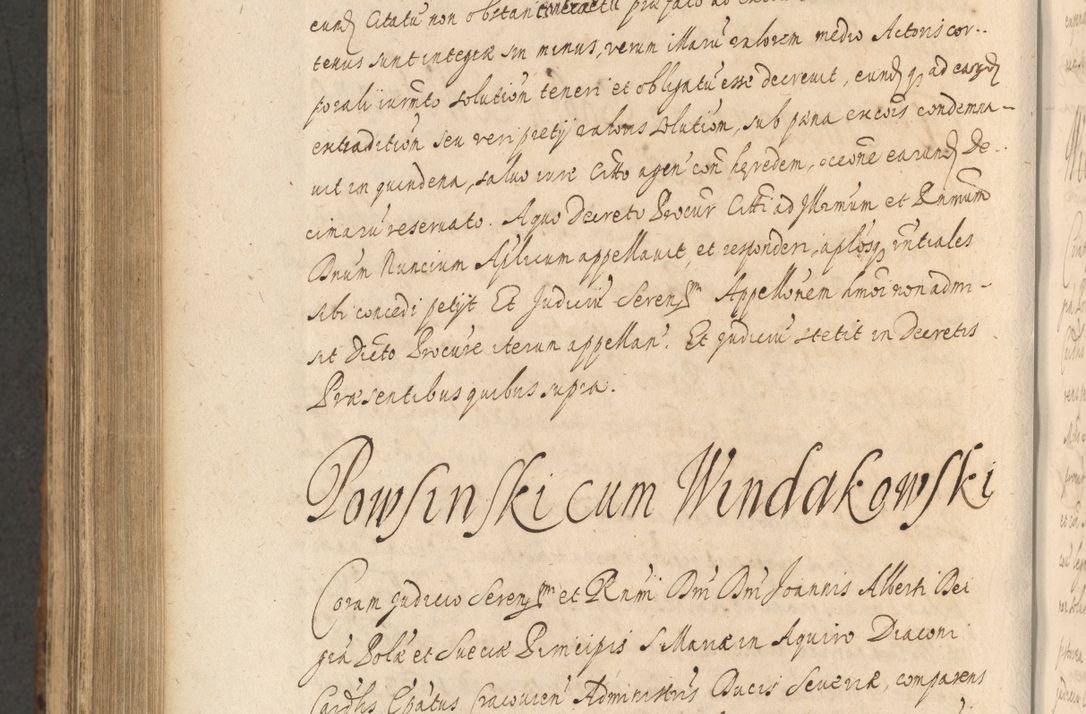 eund Citatũ non obstan contractu præfato ad
tenus sunt integræ sin minus, verum illarũ valorem medio Actoris cor-
porali iurm̃to solutioñ teneri et obligatũ esse decreuit, eund q ad earund
extraditioñ seu veri pretij valoris solutioñ, sub pæna excõis condemna-
uit in quindena, saluo iure Citto agen̄ con̄ hæredem, occone earund De-
cimarũ reseruato. A quo Decreto Procur̃ Citti ad Illr̃mum et Rñmum
Dnũm Nuncium Ap̃licum appellauit, et responderi, aplosq rñtiales
sibi concedi petijt Et Judiciũ Sereñssm̃ Appellõnem hmõi non admi-
sit Dicto Procur̃e iterum appellañ. Et Judiciũ stetit in Decretis
Præsentibus quibus supra.
Powsinski cum Windakowski
Coram Judicio Sereñssm̃i et Rñmi Dñi Dñi Joannis Alberti Dei
gr̃a Polæ et Sueciæ Principis S. Mariæ in Aquiro Diaconi
Cardlis Ep̃atus Cracouien̄ Administr̃is Ducis Seueriæ, comparens